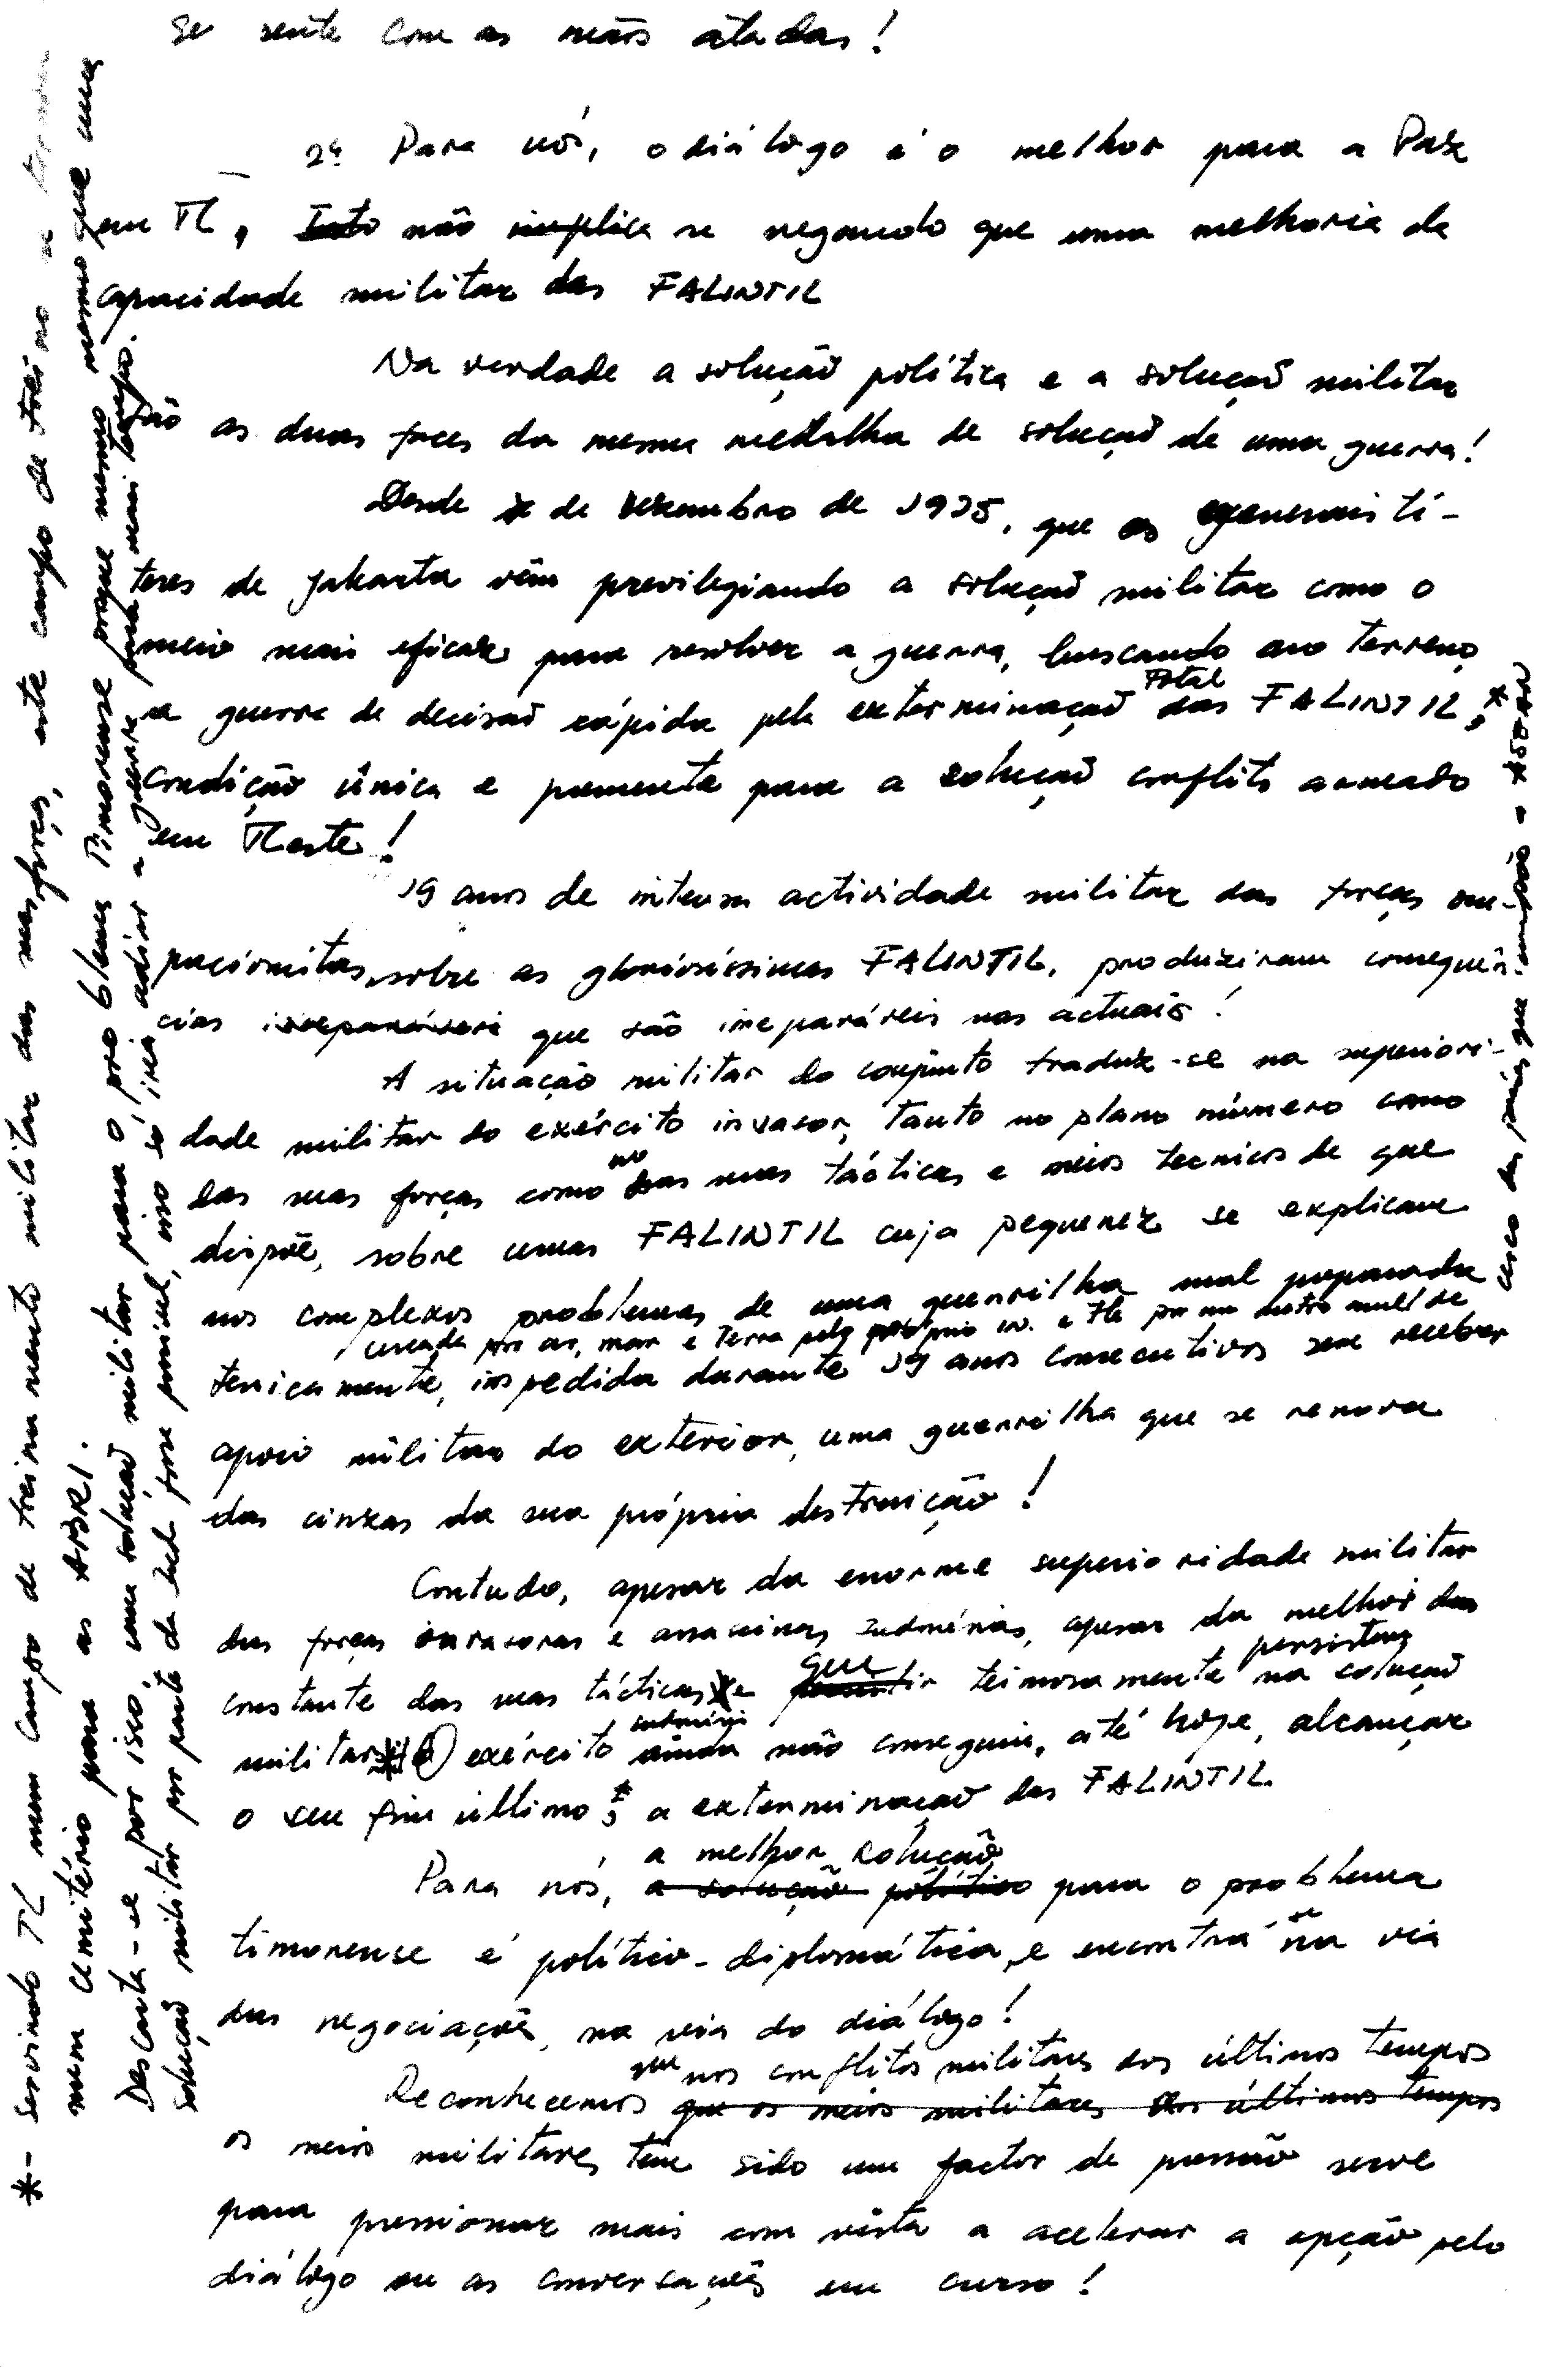 se sente com as mãos atadas!
2º Para nós, o diálogo é o melhor para a Paz
em TL, Isto não implica se negando que uma melhoria da
capacidade militar das FALINTIL
Na verdade a solução política e a solução militar
são as duas faces da mesma medalha de solução de uma guerra!
Desde de Dezembro de 1975, que os generais tí-
teres de Jakarta vêm previlegiando a solução militar como o
meio mais eficaz para resolver a guerra, buscando no terreno
a guerra de decisão rápida pela exterminação total das FALINTIL,*
condição única e premente para a solução conflito armado
em TLeste!
19 anos de intensa actividade militar das forças ocu-
pacionistas, sobre as gloriosíssimas FALINTIL, produziram consequên-
cias irreparáveis que são irreparáveis nas actuais!
A situação militar do conjunto traduz-se na superiori-
dade militar do exército invasor, tanto no plano número como
das suas forças como no das suas tácticas e meios tecnicos de que
dispõe, sobre umas FALINTIL cuja pequenez se explicam
nos complexos problemas de uma guerrilha mal preparada
cercada por ar, mar e terra pelo próprio in. e por um outro
tenicamente, impedida durante 19 anos consecutivos sem receber
apoio militar do exterior, uma guerrilha que se renova
das cinzas da sua própria destruição!
Contudo, apesar da enorme superioridade militar
das forças invasoras e assassinas indonésias, apesar da melhor das
constante das suas tácticas e que persistir teimosamente persistem na solução
militar, o exército indonési ainda não conseguiu, até hoje, alcançar
o seu fim último: a exterminação das FALINTIL.
a melhor solução
Para nós, a solução político para o problema
timorense é político-diplomática, e encontra-se na via
das negociações, na via do diálogo!
que nos conflitos militares dos últimos tempos
Reconhecemos que os meios militares dos últimos tempos
os meios militares, tem sido um factor de pressão serve
para pressionar mais com vista a acelerar a opção pelo
diálogo ou as conversações em curso!
*- servindo TL num campo de treinamento militar das suas forças, este campo de treino a
num cemitério para as ABRI.
Descarta-se por isso, uma solução militar para o problema Timorense porque mesmo mesmo que uma
solução militar por parte da fosse possível, isso só iria adiar a guerra para mais tempo.
cerco dos países que - ASEAN